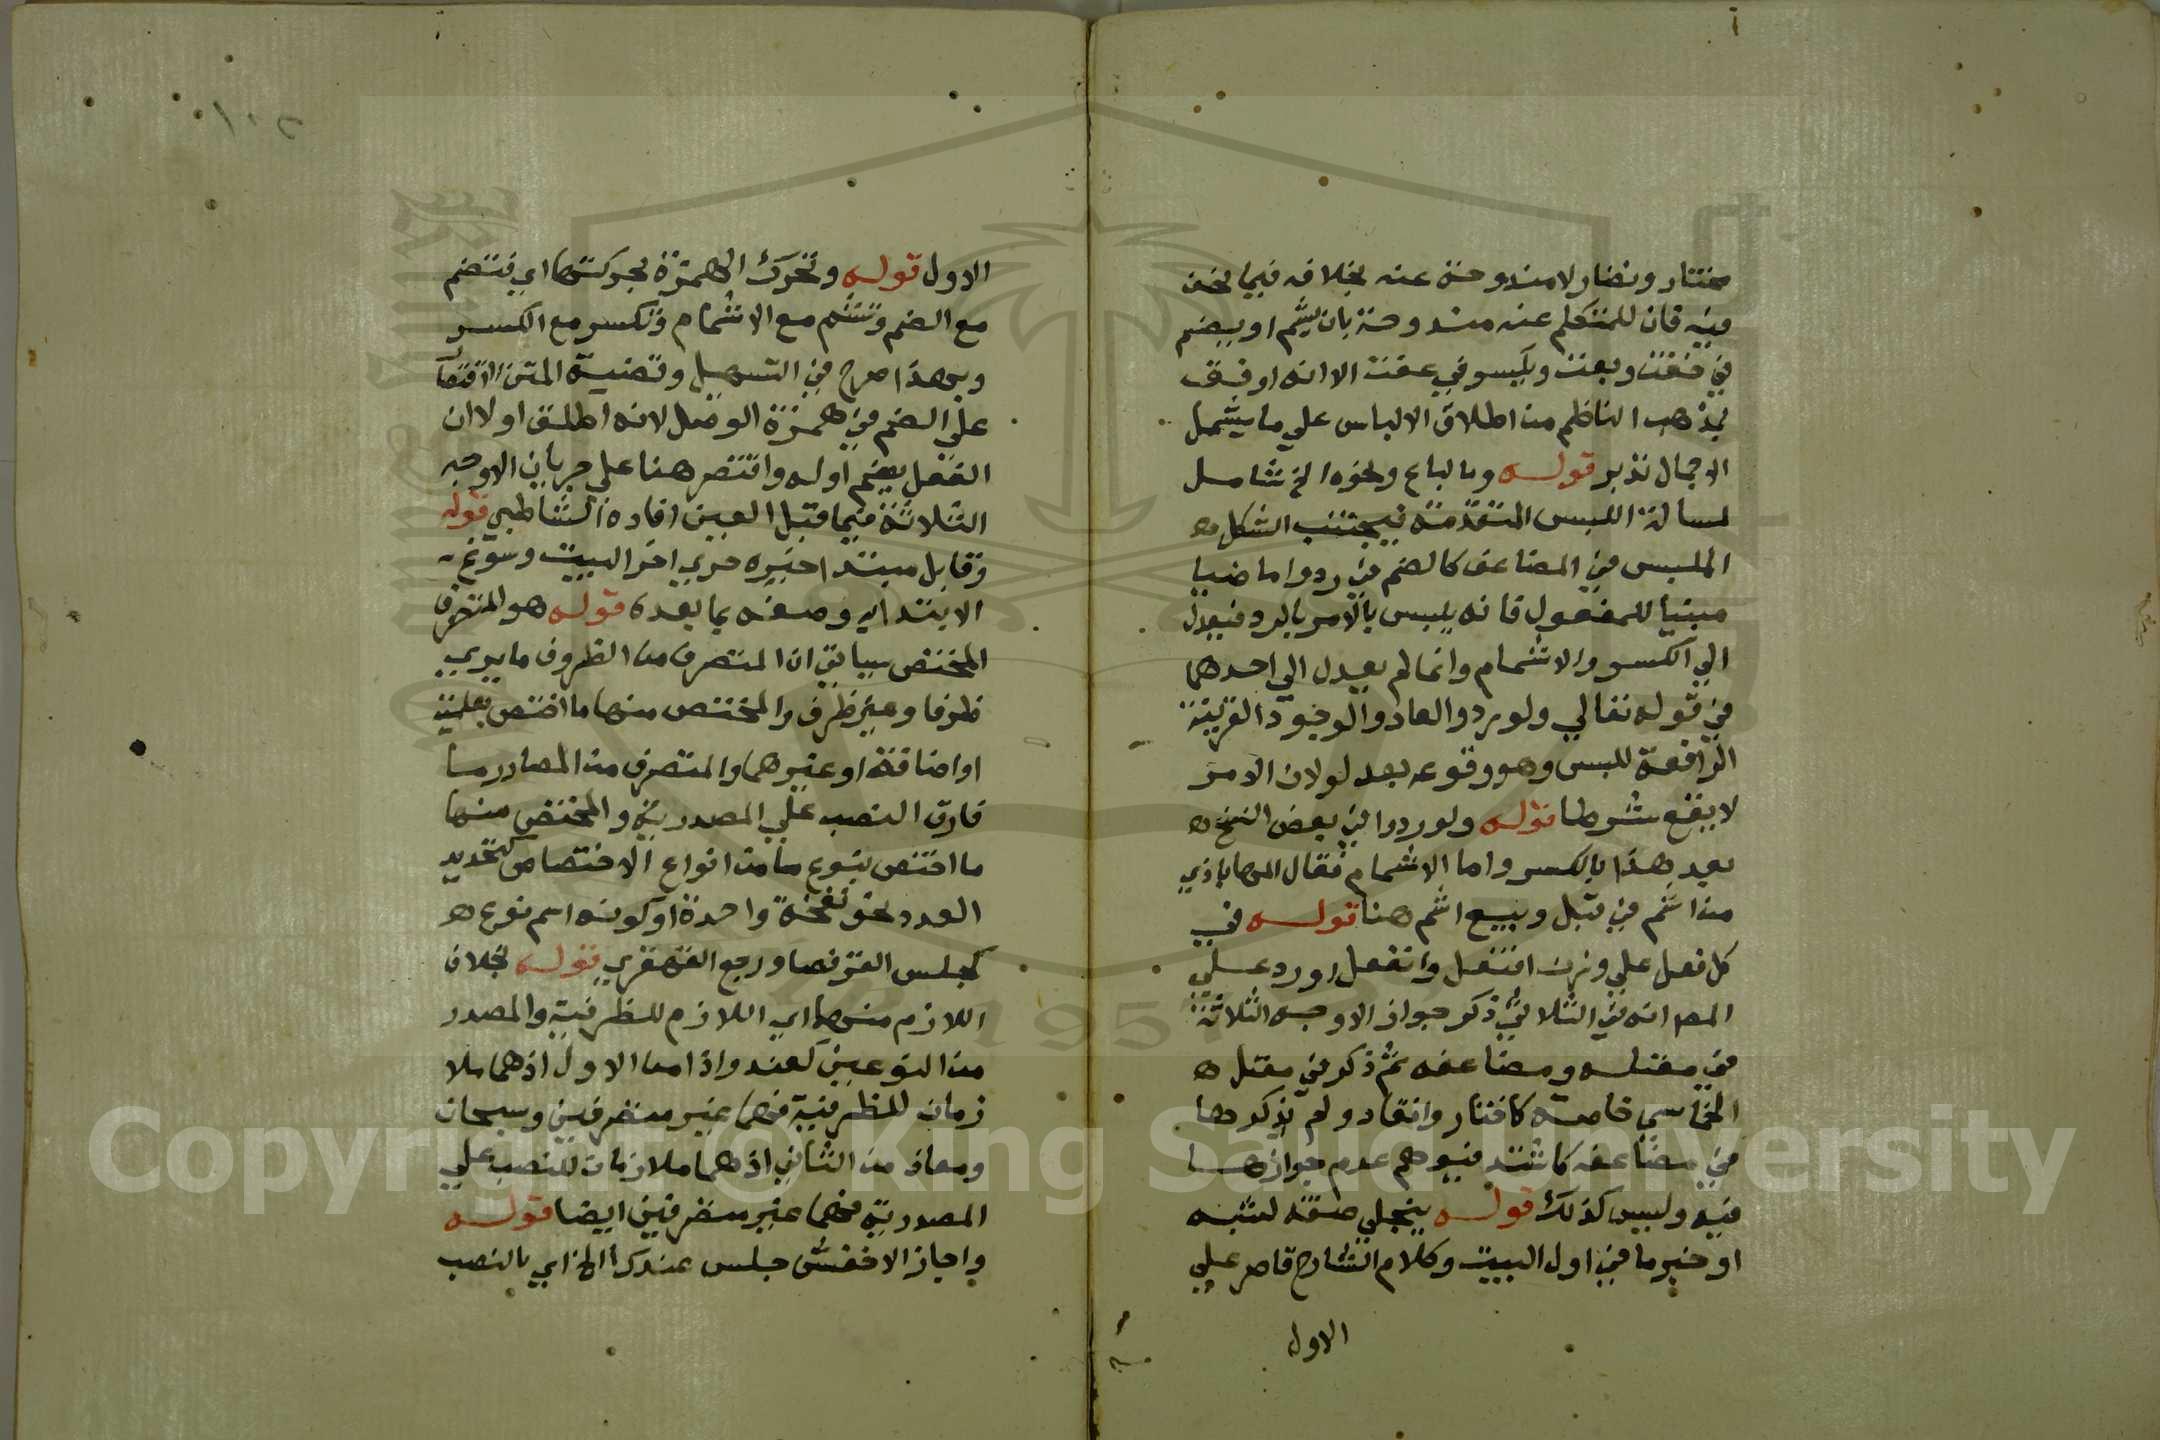 مختار وتضار لا مندوحة عنه بخلافه فيما نحن
فيه فان للمتكلم عنه مندوحة بان يشم او يضم
في خفت وبعت ويكسر في عقت الا انه اوفق
بمذهب الناظم من اطلاق الالباس على ما يشمل
الاجمال تدبر قوله وما لباع ونحوه الخ شامل
لمسالة اللبس المتقدمة فيجتنب الشكل
الملبس في المضاعف كالضم في ردوا ماضيا
مبنيا للمفعول فانه يلبس بالامر بالرد فيعدل
الى الكسر والاشمام وانما لم يعدل الى احدهما
في قوله تعالى ولو ردوا لعادوا لوجود القرينة
الرافعة للبس وهو وقوعه بعد لو لان الامر
لا يقع شرطا قوله ولو ردوا في بعض النسخ
بعد هذا بالكسر واما الاشمام فقال المهاباذي
من اشم في قيل وبيع اشم هنا قوله في
كل فعل على وزن افتعل وانفعل اورد على
المصم انه في الثلاثي ذكر جواز الاوجه الثلاثة
في معتله ومضاعفه ثم ذكر في معتل
الخماسي خاصة كاختار وانقاد ولم يذكرها
في مضاعفه كاشتد فيوهم عدم جوازها
فيه وليس كذلك قوله ينجلي صفة لشبه
او خبر ما في اول البيت وكلام الشارح قاصر على
الاول
١٠٢
الاول قوله وتحرك الهمزة بحركتها اي فتضم
مع الضم وتشم مع الاشمام وتكسر مع الكسر
وبهذا صرح في التسهيل وقضية المتن الاقتصار
على الضم في همزة الوصل لانه اطلق اولا ان
الفعل يضم اوله واقتصر هنا على جريان الاوجه
الثلاثة فيما قبل العين افاده الشاطبي قوله
وقابل مبتدا خبره حري اخر البيت وسوغ
الابتدا به وصفه بما بعده قوله هو المتصرف
المختص سياتي ان المتصرف من الظروف ما يرى
ظرفا وغير ظرف والمختص منها ما اختص بعلمية
او اضافة او غيرهما والمتصرف من المصادر ما
فارق النصب على المصدرية والمختص منها
ما اختص بنوع ما من انواع الاختصاص كتحديد
العدد نحو نفخة واحدة او كونه اسم نوع
كجلس القرفصا ورجع القهقرى قوله بخلاف
اللازم منهما اي اللازم للظرفية والمصدر
من النوعين كعند واذا من الاول اذ هما ملا
زمان للظرفية فهما غير متصرفين وسبحان
ومعاذ من الثاني اذ هما ملازمان للنصب على
المصدرية فهما غير متصرفين ايضا قوله
واجاز الاخفش جلس عندك الخ اي بالنصب
Copyright © King Saud University
1957